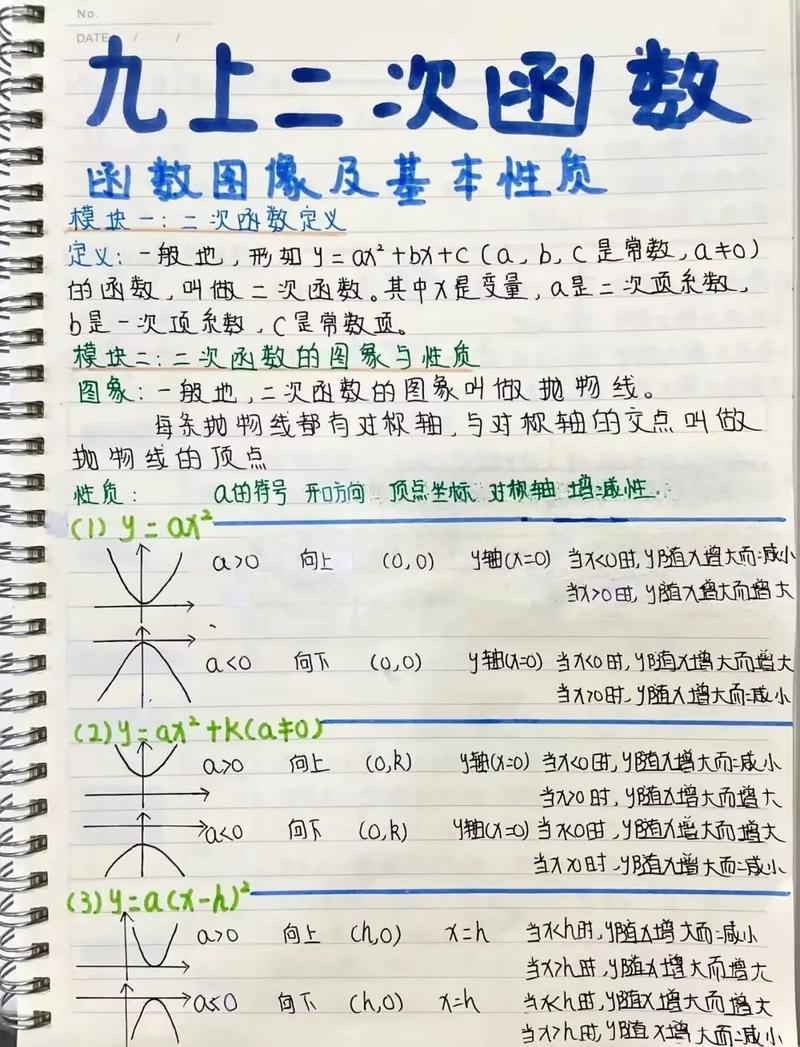 No.
DATE / /
九上二次函数
函数图像及基本性质
模块一:二次函数定义
定义:一般地,形如y=ax²+bx+c(a,b,c是常数,a≠0)
的函数,叫做二次函数。其中x是变量,a是二次项系数,
b是一次项系数,c是常数项。
模块二:二次函数的图象与性质
图象:一般地,二次函数的图象叫做抛物线。
每条抛物线都有对称轴,与对称轴的交点叫做
抛物线的顶点
性质: a的符号 开口方向 顶点坐标 对称轴 增减性.
(1) y=ax²
a>0 向上 (0,0) y轴(x=0) 当x<0时,y随x增大而减小
当x>0时,y随x增大而增大
a<0 向下 (0,0) y轴(x=0) 当x<0时,y随x增大而增大
当x>0时,y随x增大而减小
(2) y=ax²+k(a≠0)
a>0 向上 (0,k) y轴(x=0) 当x<0时,y随x增大而减小
当x>0时,y随x增大而增大
a<0 向下 (0,k) y轴(x=0) 当x<0时,y随x增大而增大
当x>0时,y随x增大而减小
(3) y=a(x-h)²
a>0 向上 (h,0) x=h 当x<h时,y随x增大而减小
当x>h时,y随x增大而增大
a≤0 向下 (h,0) x=h 当x<h时,y随x增大而增大
当x>h时,y随x增大而减小